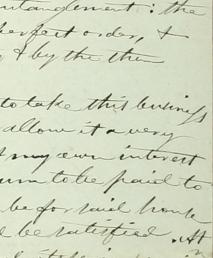 entanglement: the
perfect order, &
, & by the then
to take this business
allow it a very
my own interest
sum to be paid to
be for said house
be satisfied. At